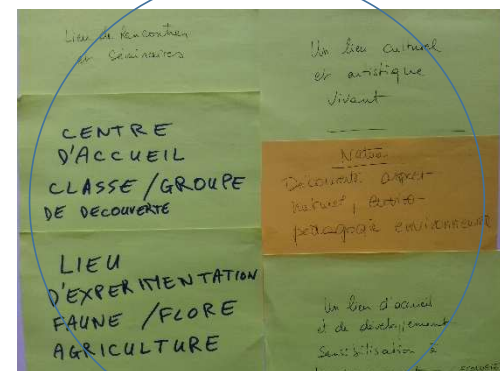 Lieu de Rencontres
et Séminaires
CENTRE
D'ACCUEIL
CLASSE/GROUPE
DE DECOUVERTE
LIEU
D'EXPERIMENTATION
FAUNE /FLORE
AGRICULTURE
Un lieu culturel
et artistique
vivant
Nature
Découverte aspect
naturel,
pédagogie environnement
Un lieu d'accueil
et de développement
Sensibilisation à